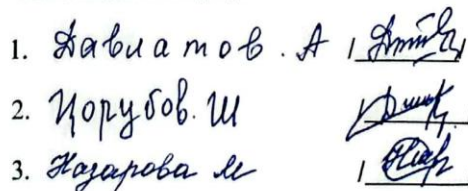 1. Давлатов. А
2. Чорубов. Ш
3. Назарова М